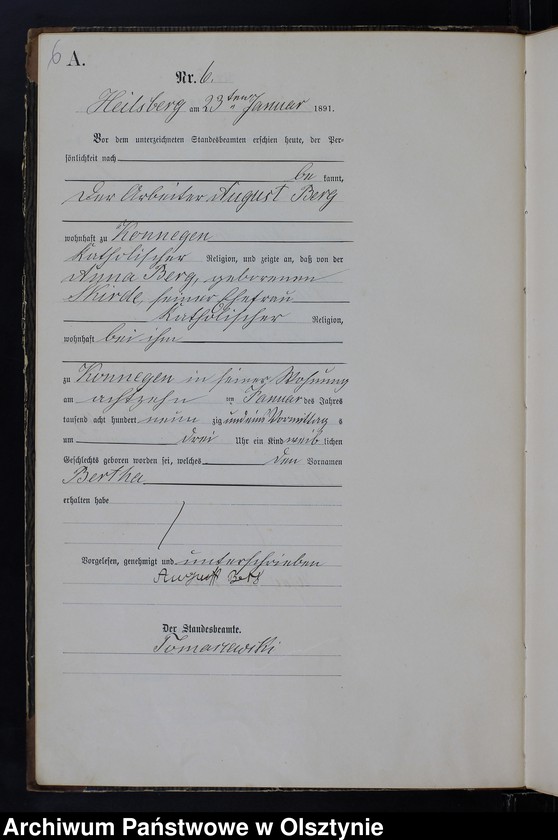 6 A.
Nr. 6.
Heilsberg am 23ten Januar 1891.
Vor dem unterzeichneten Standesbeamten erschien heute, der Per-
sönlichkeit nach
be kannt,
Der Arbeiter August Berg
wohnhaft zu Konnegen
katholischer Religion, und zeigte an, daß von der
Anna Berg, geborenen
Skirde, seiner Ehefrau
katholischer Religion,
wohnhaft bei ihm
zu Konnegen in seiner Wohnung
am achtzehn ten Januar des Jahres
tausend acht hundert neun zig und eins Vormittag s
um drei Uhr ein Kind weib lichen
Geschlechts geboren worden sei, welches den Vornamen
Bertha
erhalten habe
Vorgelesen, genehmigt und unterschrieben
August Berg
Der Standesbeamte.
Tomaszewski
Archiwum Państwowe w Olsztynie